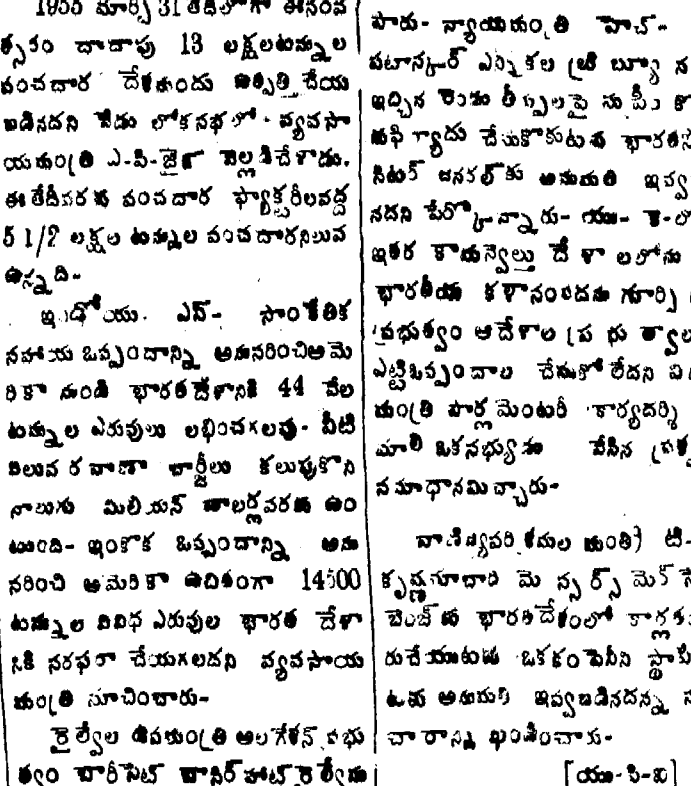 1955 మార్చి 31 తేదీలోగా ఈసంవ
త్సరం దాదాపు 13 లక్షలటన్నుల
పంచదార దేశమందు ఉత్పత్తి చేయ
బడినదని నేడు లోకసభలో వ్యవసా
యమంత్రి ఎ-పి-జైన్ వెల్లడిచేశాడు.
ఈతేదీవరకు పంచదార ఫ్యాక్టరీలవద్ద
5 1/2 లక్షల టన్నుల పంచదారనిలువ
ఉన్నది-
ఇండోయు. ఎస్- సాంకేతిక
సహాయ ఒప్పందాన్ని అనుసరించిఅమె
రికా నుండి భారతదేశానికి 44 వేల
టన్నుల ఎరువులు లభించగలవు- వీటి
విలువ రవాణా చార్జీలు కలుపుకొని
నాలుగు మిలియన్ డాలర్లవరకు ఉం
టుంది- ఇంకొక ఒప్పందాన్ని అను
సరించి అమెరికా ఉచితంగా 14500
టన్నుల వివిధ ఎరువుల భారత దేశా
నికి సరఫరా చేయగలదని వ్యవసాయ
మంత్రి సూచించారు-
రైల్వేల ఉపమంత్రి అలగేశన్ ప్రభు
త్వం బారీసెట్ బాసిర్‌హాట్ రైల్వేను
పారు- న్యాయమంత్రి హెచ్-
పటాస్కర్ ఎన్నికల ట్రిబ్యూన
ఇచ్చిన రెండు తీర్పులపై సుప్రీం కో
ఫిర్యాదు చేసుకొనుటకు భారత
సిటర్ జనరల్‌కు అనుమతి ఇవ్వ
నదని పేర్కొన్నారు- యు- కె-లో
ఇతర కామన్వెల్తు దేశాలలోను
భారతీయ కళానంపదను గూర్చి
ప్రభుత్వం ఆదేశాల ప్రభుత్వాల
ఎట్టిఒప్పందాల చేసుకోలేదని వి
మంత్రి పార్లమెంటరీ కార్యదర్శి
మాలీ ఒకసభ్యుడు వేసిన ప్రశ్న
సమాధానమిచ్చారు-
వాణిజ్యపరిశ్రమల మంత్రి టి-
కృష్ణమాచారి మెస్సర్స్ మెర్సె
బెంజ్‌కు భారతదేశంలో కార్లత
రుచేయుటకు ఒకకంపెనీని స్థాపి
ఓకు అనుమతి ఇవ్వబడినదన్న స
చారాన్ని ఖండించారు-
[యు-పి-ఐ]